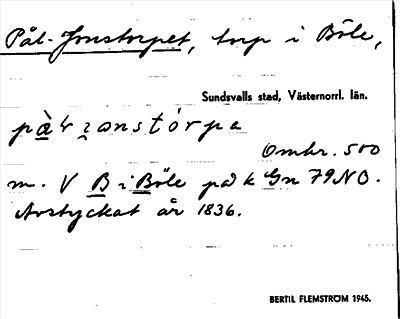 Pål-Jonstorpet, torp i Böle,
Sundsvalls stad, Västernorrl. län.
pàlzonstórpa
Omkr. 500
m. V B i Böle på k Gn 79NO.
Avstyckat år 1836.
BERTIL FLEMSTRÖM 1945.